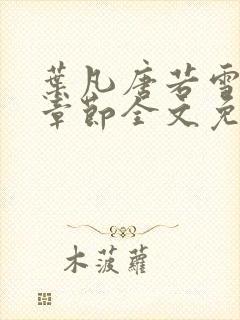 葉凡唐若雪
章節全文免
木菠蘿